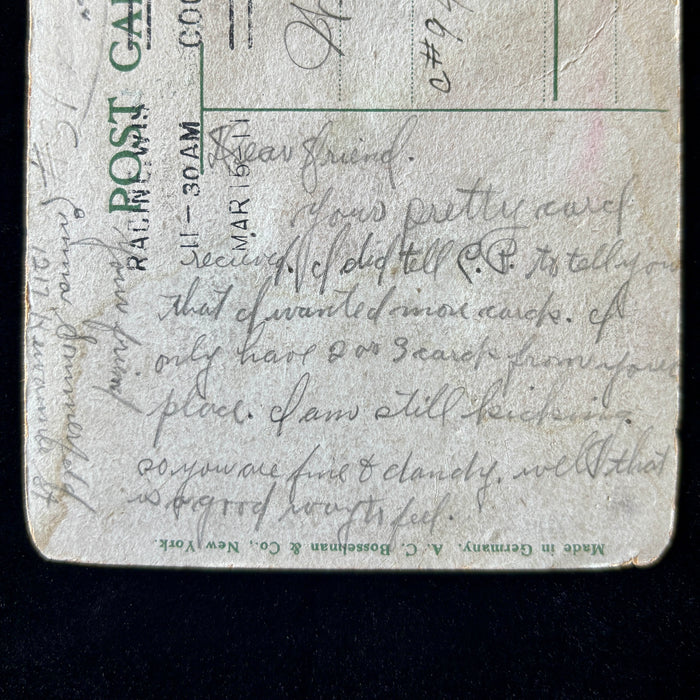 POST CA
RACINE, WIS
11-30AM
MAR 15-11
C#94
Dear Friend.
Your pretty card
recieved. I did tell C.P. to tell you
that I wanted more cards. I
only have 2 or 3 cards from your
place. I am still kicking
so you are fine & dandy. well that
is a good way to feel.
Your friend
Emma
1217
Made in Germany. A. C. Bosselman & Co., New York.